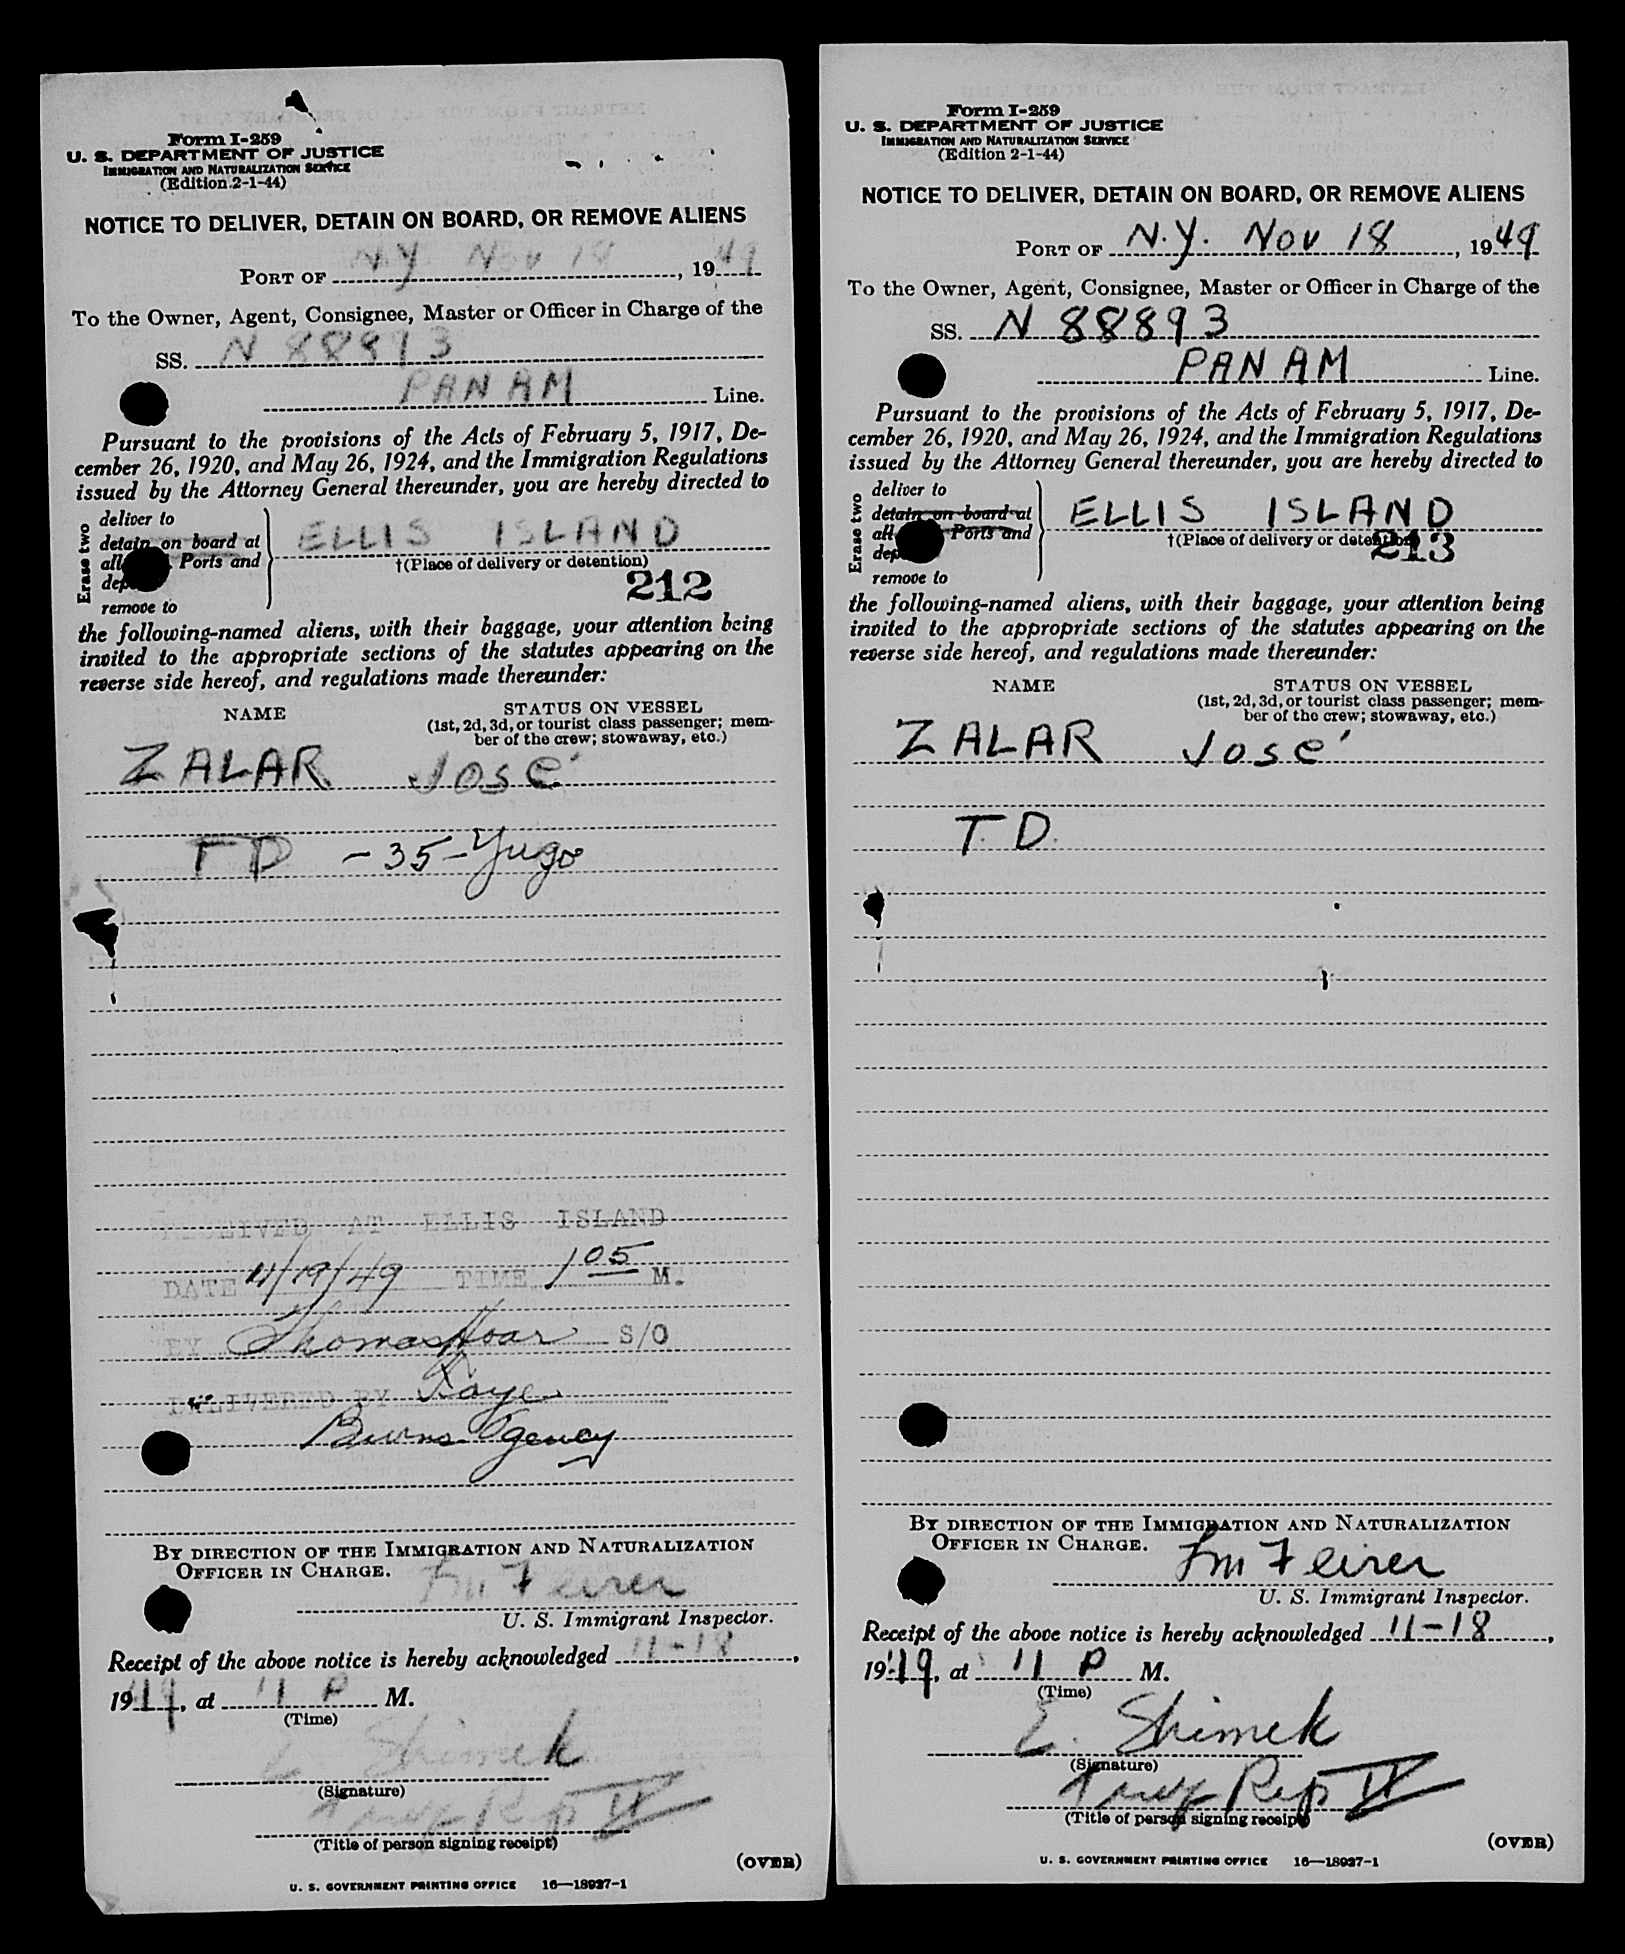 Form I-259
U. S. DEPARTMENT OF JUSTICE
IMMIGRATION AND NATURALIZATION SERVICE
(Edition 2-1-44)
NOTICE TO DELIVER, DETAIN ON BOARD, OR REMOVE ALIENS
PORT OF N.Y. Nov 18, 1949
To the Owner, Agent, Consignee, Master or Officer in Charge of the
SS. N 88893
PAN AM Line.
Pursuant to the provisions of the Acts of February 5, 1917, De-
cember 26, 1920, and May 26, 1924, and the Immigration Regulations
issued by the Attorney General thereunder, you are hereby directed to
Erase two
deliver to
detain on board at
all Ports and
remove to
ELLIS ISLAND
†(Place of delivery or detention)
212
the following-named aliens, with their baggage, your attention being
invited to the appropriate sections of the statutes appearing on the
reverse side hereof, and regulations made thereunder:
NAME
STATUS ON VESSEL
(1st, 2d, 3d, or tourist class passenger; mem-
ber of the crew; stowaway, etc.)
ZALAR José
TD - 35 - Yugo
RECEIVED AT ELLIS ISLAND
DATE 11/19/49 TIME 1 05 M.
BY Thomas Hoar S/O
DELIVERED BY Kaye
Burns Agency
BY DIRECTION OF THE IMMIGRATION AND NATURALIZATION
OFFICER IN CHARGE.
U. S. Immigrant Inspector.
Receipt of the above notice is hereby acknowledged 11-18,
1949, at 11 P M.
(Time)
E. Shimek
(Signature)
Rep
(Title of person signing receipt)
(OVER)
U. S. GOVERNMENT PRINTING OFFICE 16—18927-1
Form I-259
U. S. DEPARTMENT OF JUSTICE
IMMIGRATION AND NATURALIZATION SERVICE
(Edition 2-1-44)
NOTICE TO DELIVER, DETAIN ON BOARD, OR REMOVE ALIENS
PORT OF N.Y. Nov 18, 1949
To the Owner, Agent, Consignee, Master or Officer in Charge of the
SS. N 88893
PAN AM Line.
Pursuant to the provisions of the Acts of February 5, 1917, De-
cember 26, 1920, and May 26, 1924, and the Immigration Regulations
issued by the Attorney General thereunder, you are hereby directed to
Erase two
deliver to
detain on board at
all Ports and
remove to
ELLIS ISLAND
†(Place of delivery or detention)
213
the following-named aliens, with their baggage, your attention being
invited to the appropriate sections of the statutes appearing on the
reverse side hereof, and regulations made thereunder:
NAME
STATUS ON VESSEL
(1st, 2d, 3d, or tourist class passenger; mem-
ber of the crew; stowaway, etc.)
ZALAR José
T.D.
BY DIRECTION OF THE IMMIGRATION AND NATURALIZATION
OFFICER IN CHARGE.
U. S. Immigrant Inspector.
Receipt of the above notice is hereby acknowledged 11-18,
1949, at 11 P M.
(Time)
E. Shimek
(Signature)
Rep
(Title of person signing receipt)
(OVER)
U. S. GOVERNMENT PRINTING OFFICE 16—18927-1